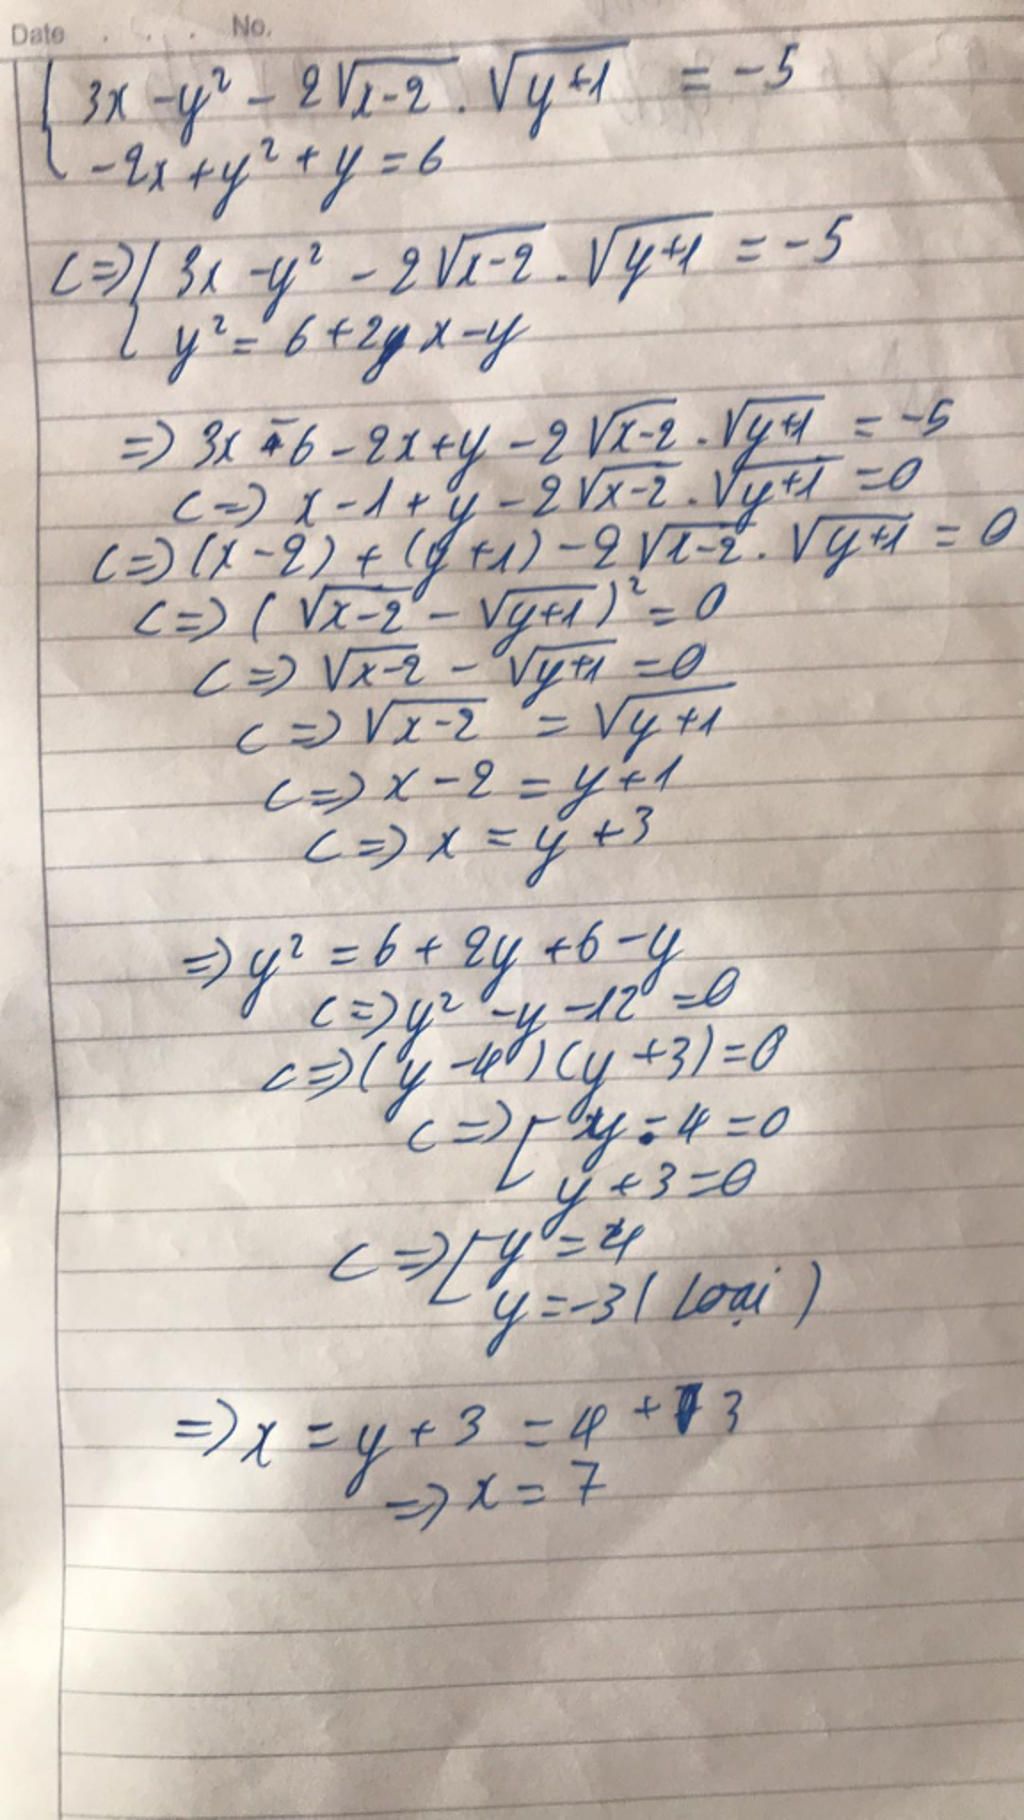 Date . . . No.
{ 3x - y² - 2√(x-2) . √(y+1) = -5
-2x + y² + y = 6
<=> { 3x - y² - 2√(x-2) . √(y+1) = -5
y² = 6 + 2x - y
=> 3x - 6 - 2x + y - 2√(x-2) . √(y+1) = -5
<=> x - 1 + y - 2√(x-2) . √(y+1) = 0
<=> (x-2) + (y+1) - 2√(x-2) . √(y+1) = 0
<=> (√(x-2) - √(y+1))² = 0
<=> √(x-2) - √(y+1) = 0
<=> √(x-2) = √(y+1)
<=> x - 2 = y + 1
<=> x = y + 3
=> y² = 6 + 2y + 6 - y
<=> y² - y - 12 = 0
<=> (y - 4)(y + 3) = 0
<=> [ y - 4 = 0
y + 3 = 0
<=> [ y = 4
y = -3 ( loại )
=> x = y + 3 = 4 + 3
=> x = 7